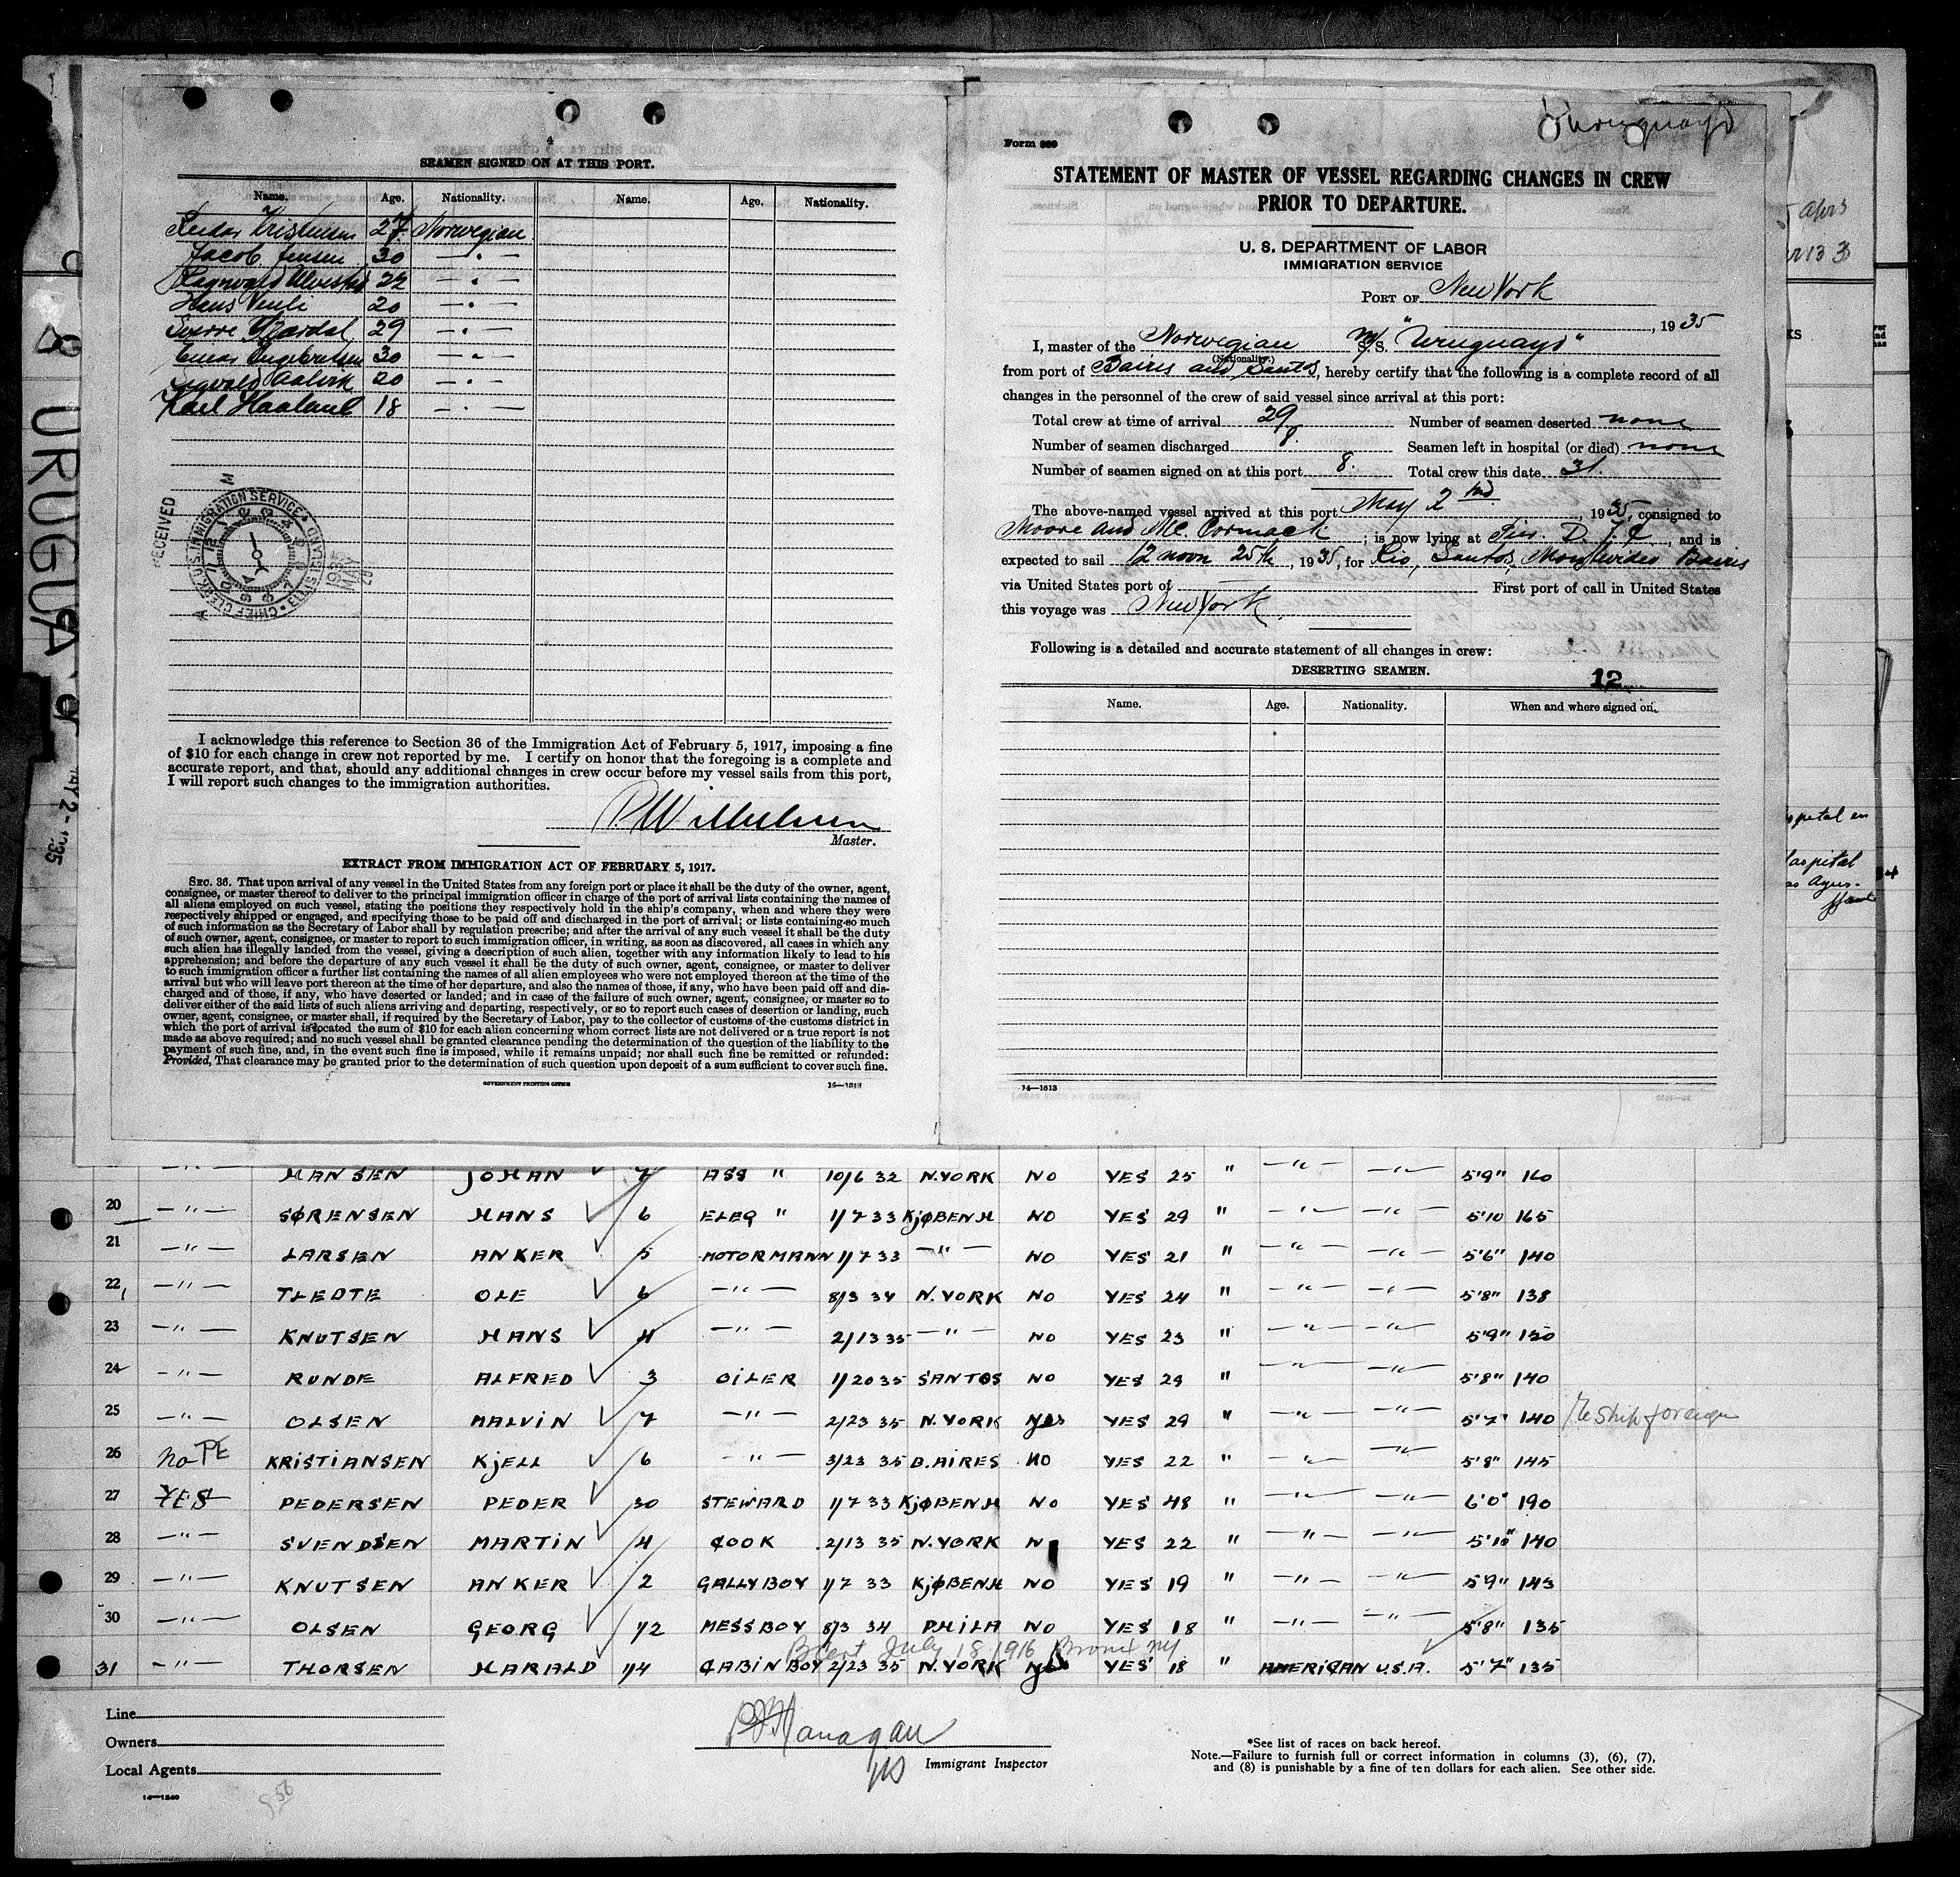 SEAMEN SIGNED ON AT THIS PORT.
Name. Age. Nationality. Name. Age. Nationality.
Kristensen 27 Norwegian
Jacob Jensen 30 — " —
Ragnvald 22 — " —
Hans 20 — " —
Sverre 29 — " —
Einar Ingebretsen 30 — " —
20 — " —
Karl Haaland 18 — " —
RECEIVED
CHIEF CLERK U.S. IMMIGRATION SERVICE ELLIS ISLAND
I acknowledge this reference to Section 36 of the Immigration Act of February 5, 1917, imposing a fine
of $10 for each change in crew not reported by me. I certify on honor that the foregoing is a complete and
accurate report, and that, should any additional changes in crew occur before my vessel sails from this port,
I will report such changes to the immigration authorities.
Master.
EXTRACT FROM IMMIGRATION ACT OF FEBRUARY 5, 1917.
SEC. 36. That upon arrival of any vessel in the United States from any foreign port or place it shall be the duty of the owner, agent,
consignee, or master thereof to deliver to the principal immigration officer in charge of the port of arrival lists containing the names of
all aliens employed on such vessel, stating the positions they respectively hold in the ship's company, when and where they were
respectively shipped or engaged, and specifying those to be paid off and discharged in the port of arrival; or lists containing so much
of such information as the Secretary of Labor shall by regulation prescribe; and after the arrival of any such vessel it shall be the duty
of such owner, agent, consignee, or master to report to such immigration officer, in writing, as soon as discovered, all cases in which any
such alien has illegally landed from the vessel, giving a description of such alien, together with any information likely to lead to his
apprehension; and before the departure of any such vessel it shall be the duty of such owner, agent, consignee, or master to deliver
to such immigration officer a further list containing the names of all alien employees who were not employed thereon at the time of the
arrival but who will leave port thereon at the time of her departure, and also the names of those, if any, who have been paid off and dis-
charged and of those, if any, who have deserted or landed; and in case of the failure of such owner, agent, consignee, or master so to
deliver either of the said lists of such aliens arriving and departing, respectively, or so to report such cases of desertion or landing, such
owner, agent, consignee, or master shall, if required by the Secretary of Labor, pay to the collector of customs of the customs district in
which the port of arrival is located the sum of $10 for each alien concerning whom correct lists are not delivered or a true report is not
made as above required; and no such vessel shall be granted clearance pending the determination of the question of the liability to the
payment of such fine, and, in the event such fine is imposed, while it remains unpaid; nor shall such fine be remitted or refunded:
Provided, That clearance may be granted prior to the determination of such question upon deposit of a sum sufficient to cover such fine.
GOVERNMENT PRINTING OFFICE 14—1613
Uruguayo
Form 689
STATEMENT OF MASTER OF VESSEL REGARDING CHANGES IN CREW
PRIOR TO DEPARTURE.
U. S. DEPARTMENT OF LABOR
IMMIGRATION SERVICE
PORT OF New York
, 1935
I, master of the Norwegian M/S. S. "Uruguayo"
(Nationality.)
from port of Baires and Santos, hereby certify that the following is a complete record of all
changes in the personnel of the crew of said vessel since arrival at this port:
Total crew at time of arrival 29 Number of seamen deserted none
Number of seamen discharged 8. Seamen left in hospital (or died) none
Number of seamen signed on at this port 8. Total crew this date 31.
The above-named vessel arrived at this port May 2nd, 1935, consigned to
Moore and Mc. Cormack; is now lying at Pier D. J. C, and is
expected to sail 12 noon 25th, 1935, for Rio, Santos, Montevideo Baires
via United States port of — First port of call in United States
this voyage was New York.
Following is a detailed and accurate statement of all changes in crew:
DESERTING SEAMEN. 12
Name. Age. Nationality. When and where signed on.
14—1613
URUGUA
MAY 2 - 1935
HANSEN JOHAN 7 ASS " 10/6 32 N.YORK NO YES 25 " — " — — " — 5'9" 160
20 — " — SØRENSEN HANS 6 ELEQ " 1/7 33 KJØBENH NO YES 29 " — " — — " — 5'10 165
21 — " — LARSEN ANKER 5 MOTORMANN 1/7 33 — " — NO YES 21 " — " — — " — 5'6" 140
22 — " — TLEDTE OLE 6 — " — 8/3 34 N.YORK NO YES 24 " — " — — " — 5'8" 138
23 — " — KNUTSEN HANS 4 — " — 2/13 35 — " — NO YES 23 " — " — — " — 5'9" 150
24 — " — RUNDE ALFRED 3 OILER 1/20 35 SANTOS NO YES 29 " — " — — " — 5'8" 140
25 — " — OLSEN MALVIN 7 — " — 2/23 35 N.YORK yes YES 29 " — " — — " — 5'7" 140 Reship foreign
26 no PE KRISTIANSEN KJELL 6 — " — 3/23 35 B.AIRES NO YES 22 " — " — — " — 5'8" 145
27 YES PEDERSEN PEDER 30 STEWARD 1/7 33 KJØBENH NO YES 48 " — " — — " — 6'0" 190
28 — " — SVENDSEN MARTIN 4 COOK 2/13 35 N.YORK N YES 22 " — " — — " — 5'10" 140
29 — " — KNUTSEN ANKER 2 GALLYBOY 1/7 33 KJØBENH NO YES 19 " — " — — " — 5'9" 143
30 — " — OLSEN GEORG 1/2 MESSBOY 8/3 34 PHILA NO YES 18 " — " — — " — 5'8" 135
B Cert July 18 1916 Bronx NY
31 — " — THORSEN HARALD 1/4 CABIN BOY 2/23 35 N.YORK yes YES 18 " AMERICAN U.S.A. 5'7" 135
Line
Owners
Local Agents
Immigrant Inspector
*See list of races on back hereof.
Note.—Failure to furnish full or correct information in columns (3), (6), (7),
and (8) is punishable by a fine of ten dollars for each alien. See other side.